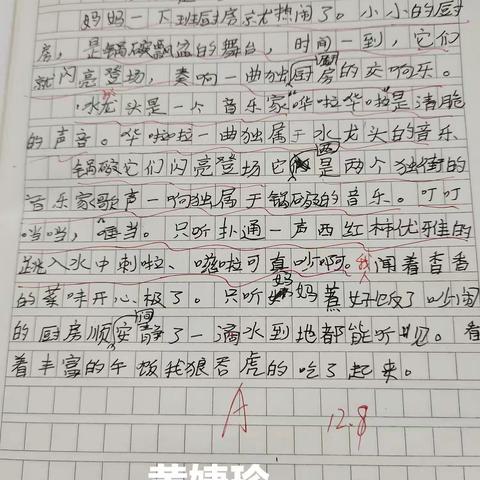 妈妈一下班厨房就热闹了。小小的厨
房，是锅碗瓢盆的舞台，时间一到，它们
就闪亮登场，奏响一曲独厨房的交响乐。
水龙头是一个音乐家"哗啦华啦"是清脆
的声音。华啦啦一曲独属于水龙头的音乐
锅碗它们闪亮登场它们是两个独街的
音乐家歌声一响独属于锅碗的音乐。叮叮
当当，当。只听扑通一声西红柿优雅的
跳入水中刺啦、啦可真吵啊。我闻着香香
的菜味开心极了。只听妈妈煮好饭了吵闹
的厨房顺间安静了一滴水到地都能听见。看
着丰富的午饭我狼吞虎的吃了起来。
A 12.8
黄婧珍